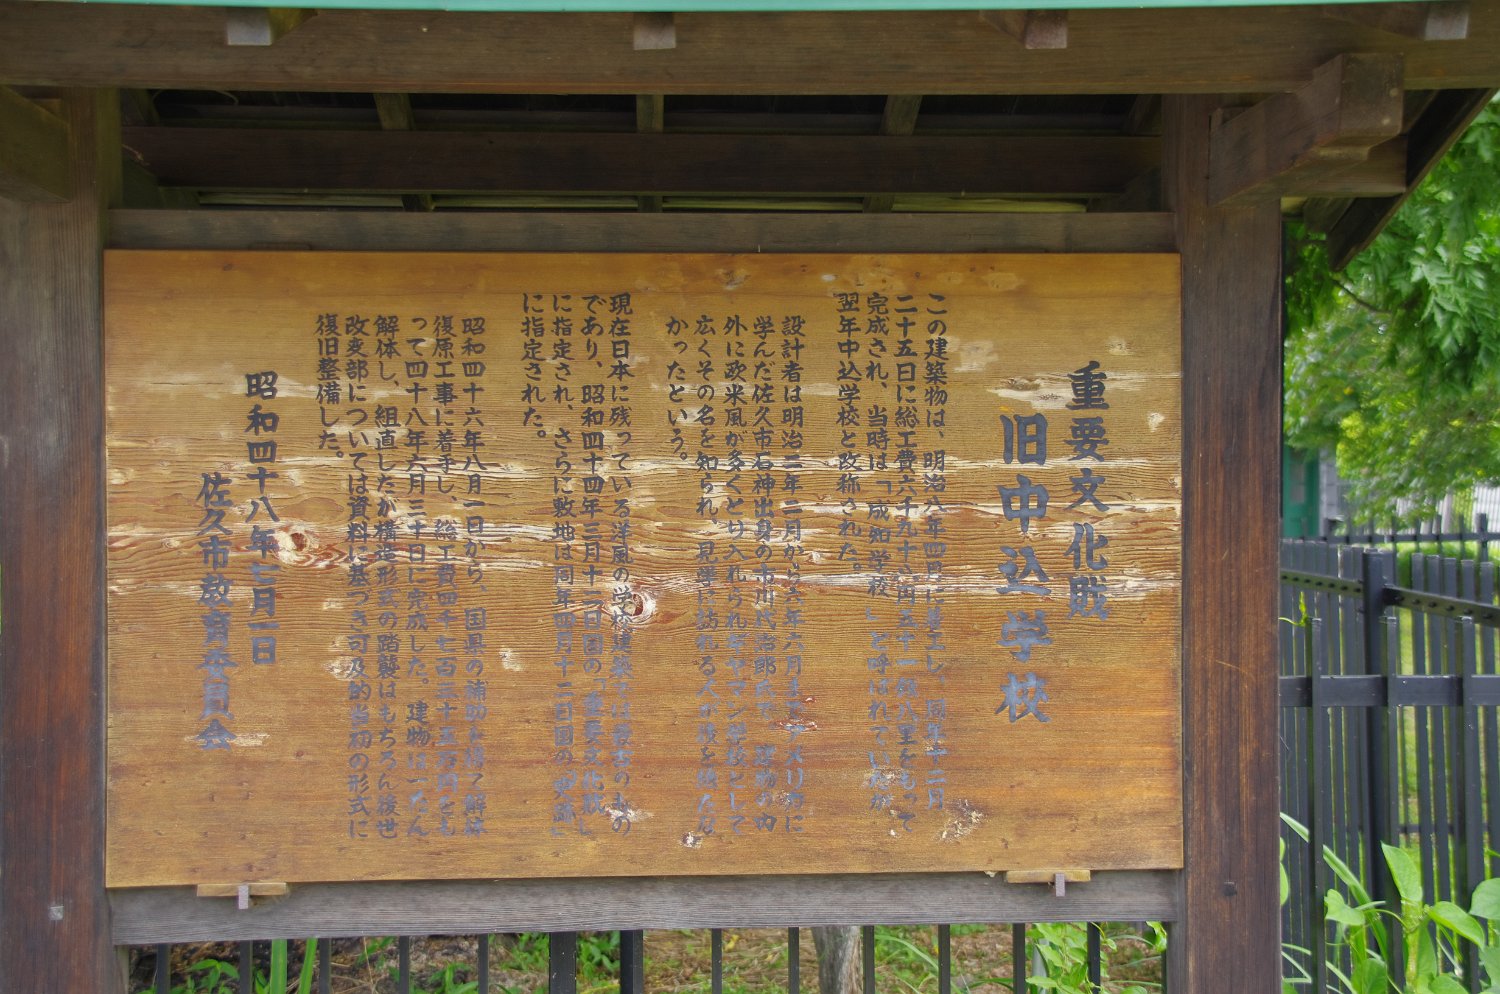 重要文化財
旧中込学校
この建築物は、明治八年四月に着工し、同年十二月
二十五日に総工費六千九十八円五十一銭八厘をもって
完成され、当時は「成知学校」と呼ばれていたが
翌年中込学校と改称された。
設計者は明治二年二月から六年六月までアメリカに
学んだ佐久市石神出身の市川代治郎氏で、建物の内
外に欧米風が多くとり入れられギヤマン学校として
広くその名を知られ、見学に訪れる人が後を絶たな
かったという。
現在日本に残っている洋風の学校建築では最古のもの
であり、昭和四十四年三月十二日国の「重要文化財」
に指定され、さらに敷地は同年四月十二日国の「史跡」
に指定された。
昭和四十六年八月一日から、国県の補助を得て解体
復原工事に着手し、総工費四千七百三十五万円をも
って四十八年六月三十日に完成した。建物は一たん
解体し、組直したが構造形式の踏襲はもちろん後世
改変部については資料に基づき可及的当初の形式に
復旧整備した。
昭和四十八年七月一日
佐久市教育委員会